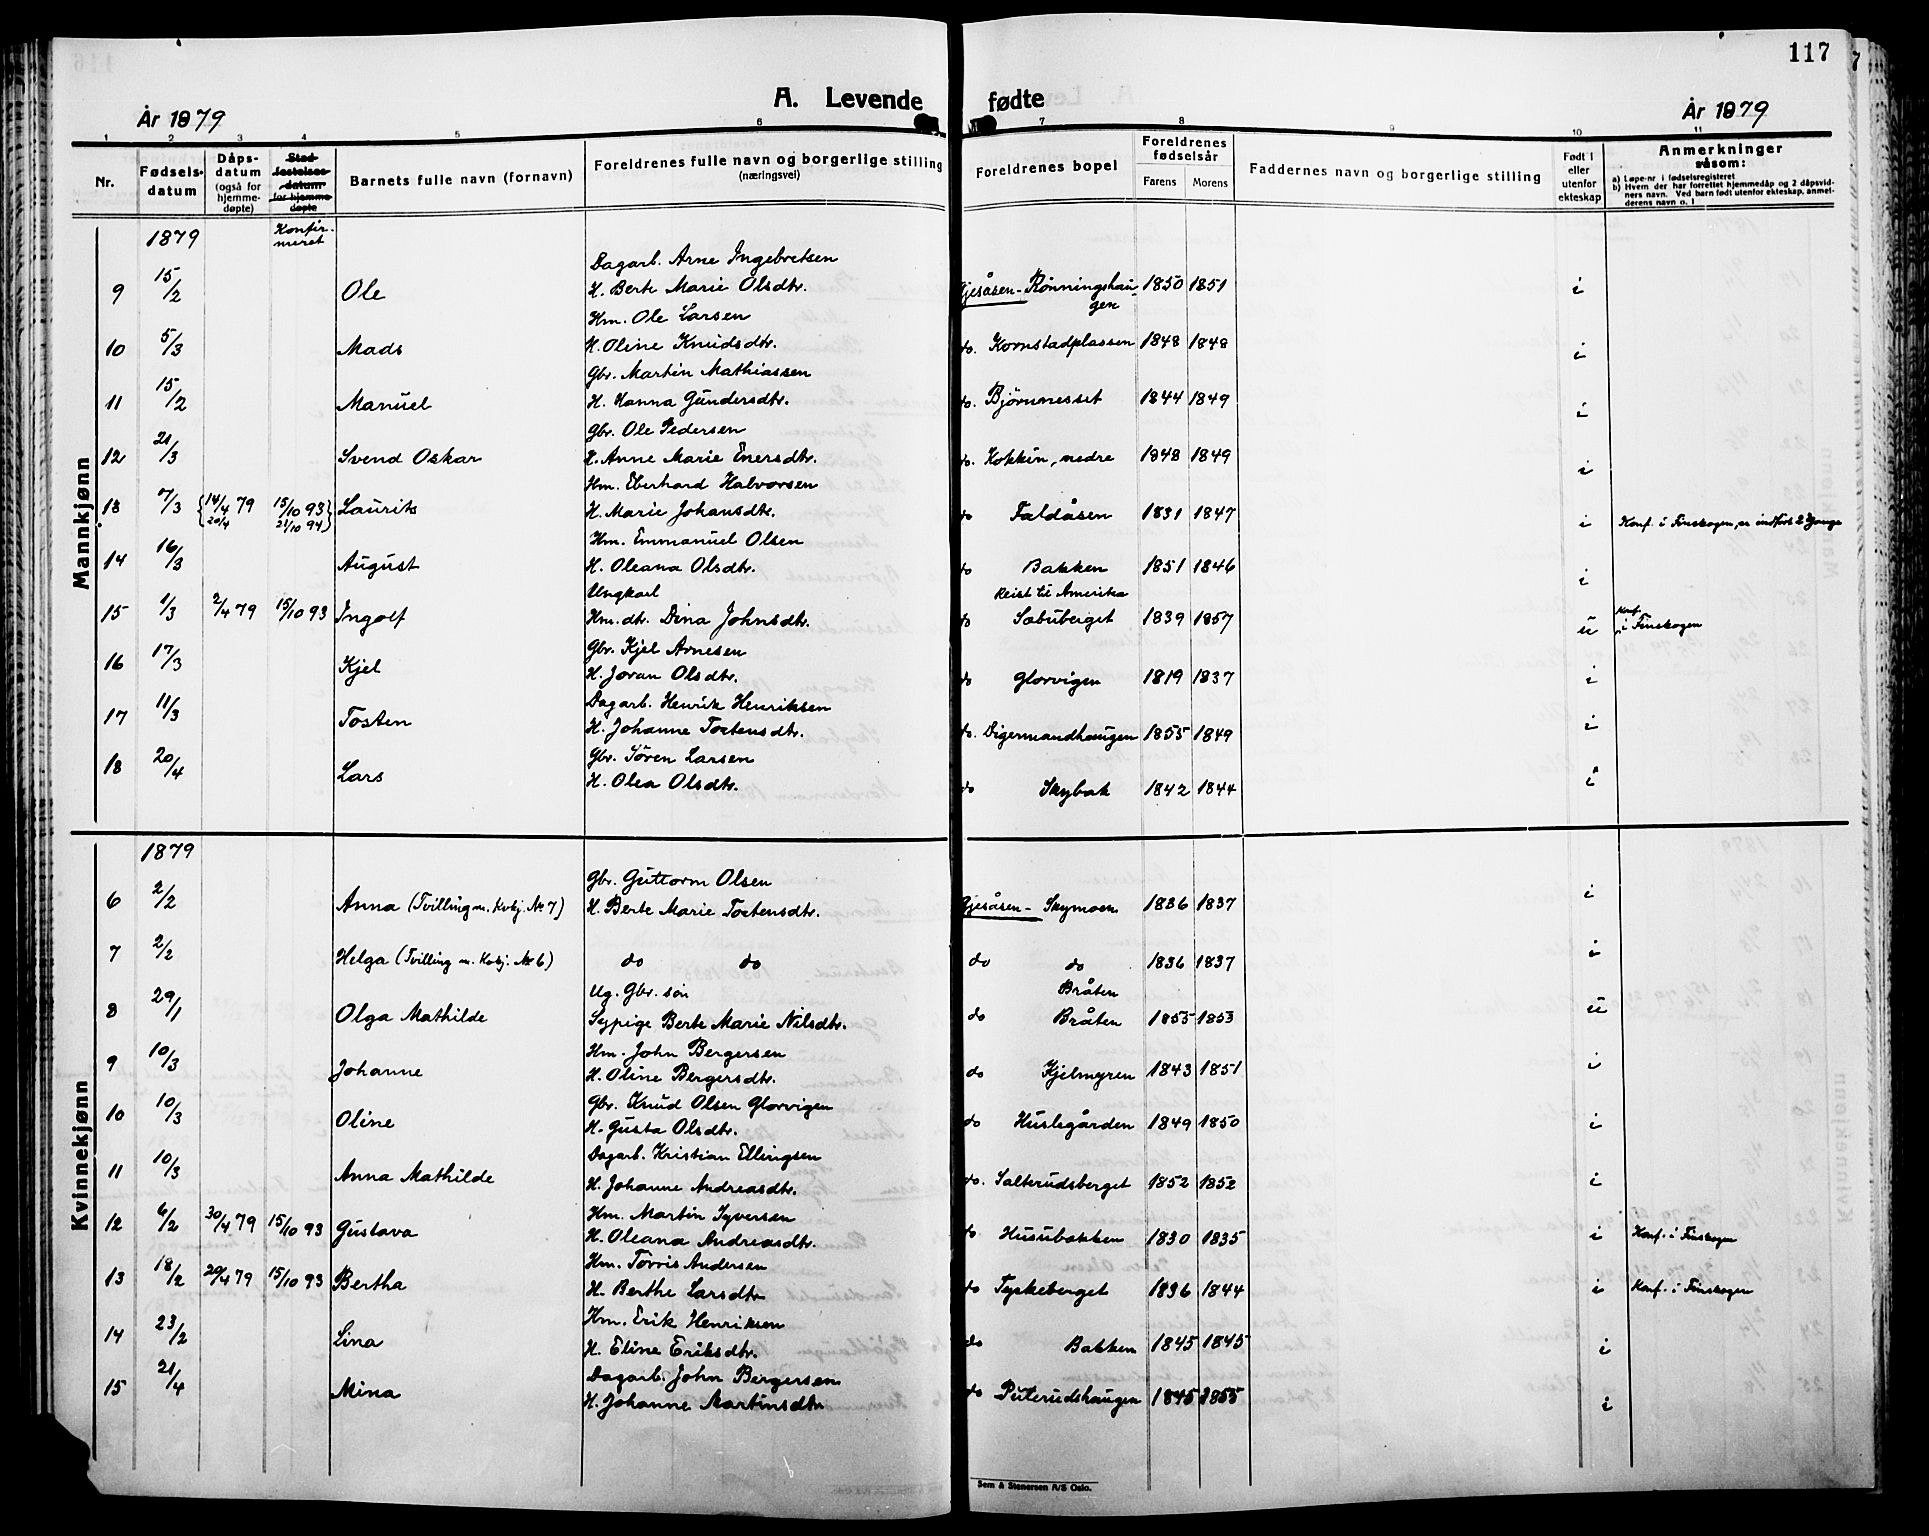 117
A. Levende fødte
År 1879
År 1879
1 2 3 4 5 6 7 8 9 10 11
Nr.
Fødsels-
datum
Dåps-
datum
(også for
hjemme-
døpte)
Stad-
festelses-
datum
for hjemme-
døpte
Barnets fulle navn (fornavn)
Foreldrenes fulle navn og borgerlige stilling
(næringsvei)
Foreldrenes bopel
Foreldrenes
fødselsår
Farens Morens
Faddernes navn og borgerlige stilling
Født i
eller
utenfor
ekteskap
Anmerkninger
såsom:
a) Løpe-nr i fødselsregisteret
b) Hvem der har forrettet hjemmedåp og 2 dåpsvid-
ners navn. Ved barn født utenfor ekteskap, anmel-
derens navn o. l
Mannkjønn
1879
Konfir-
meret
Dagarb. Arne Ingebretsen
9 15/2 Ole H. Berte Marie Olsdtr. Gjesåsen - Rønningshau- 1850 1851 i
gen
Hm. Ole Larsen
10 5/3 Mads H. Oline Knudsdtr. do. Kornstadplassen 1848 1848 i
Gbr. Martin Mathiassen
11 15/2 Manuel H. Hanna Gundersdtr. do. Bjørnnesset 1844 1849 i
Gbr. Ole Pedersen
12 21/3 Svend Oskar H. Anne Marie Enersdtr. do. Kokkin, nedre 1848 1849 i
Hm. Eberhard Halvorsen
13 7/3 {14/4 79 15/10 93} Laurits H. Marie Johansdtr. do Faldåsen 1831 1847 i Konf. i Finskogen, er indført 2 gange
20/4 21/10 94
Hm. Emmanuel Olsen
14 16/3 August H. Oleana Olsdtr. do Bakken 1851 1846 i
Ungkarl Reist til Amerika
15 1/3 2/4 79 15/10 93 Ingolf Hm. dt. Dina Johnsdtr. do Sæbuberget 1839 1857 u Konf. i Finskogen
Gbr. Kjel Arnesen
16 17/3 Kjel H. Joran Olsdtr. do Glorvigen 1819 1837 i
Dagarb. Henrik Henriksen
17 11/3 Tosten H. Johanne Tostensdtr. do. Digermandhaugen 1855 1849 i
Gbr. Søren Larsen
18 20/4 Lars H. Olea Olsdtr. do Skybak 1842 1844 i
Kvinnekjønn
1879
Gbr. Guttorm Olsen
6 2/2 Anna (Tvilling m. Kvkj. № 7) H. Berte Marie Tostensdtr. Gjesåsen - Skymoen 1836 1837 i
7 2/2 Helga (Tvilling m. Kvkj. № 6) do do do do 1836 1837 i
Ug. Gbr. søn Bråten
8 29/1 Olga Mathilde Sypige Berte Marie Nilsdtr. do Bråten 1855 1853 u
Hm. John Bergersen
9 10/3 Johanne H. Oline Bergersdtr. do Kjelmyren 1843 1851 i
Gbr. Knud Olsen Glorvigen
10 10/3 Oline H. Gusta Olsdtr. do Huslegården 1849 1850 i
Dagarb. Kristian Ellingsen
11 10/3 Anna Mathilde H. Johanne Andreasdtr. do. Salterudsberget 1852 1852 i
Hm. Martin Syversen
12 6/2 30/4 79 15/10 93 Gustava H. Oleana Andreasdtr. do Husubakken 1830 1835 i Konf. i Finskogen
Hm. Torris Andersen
13 18/2 20/4 79 15/10 93 Bertha H. Berthe Larsdtr do Tyskeberget 1836 1844 i Konf. i Finskogen
Hm. Erik Henriksen
14 23/2 Lina H. Eline Eriksdtr. do Bakken 1845 1845 i
Dagarb. John Bergersen
15 21/4 Mina H. Johanne Martinsdtr do Puterudshaugen 1845 1855 i
Sem & Stenersen A/S Oslo.